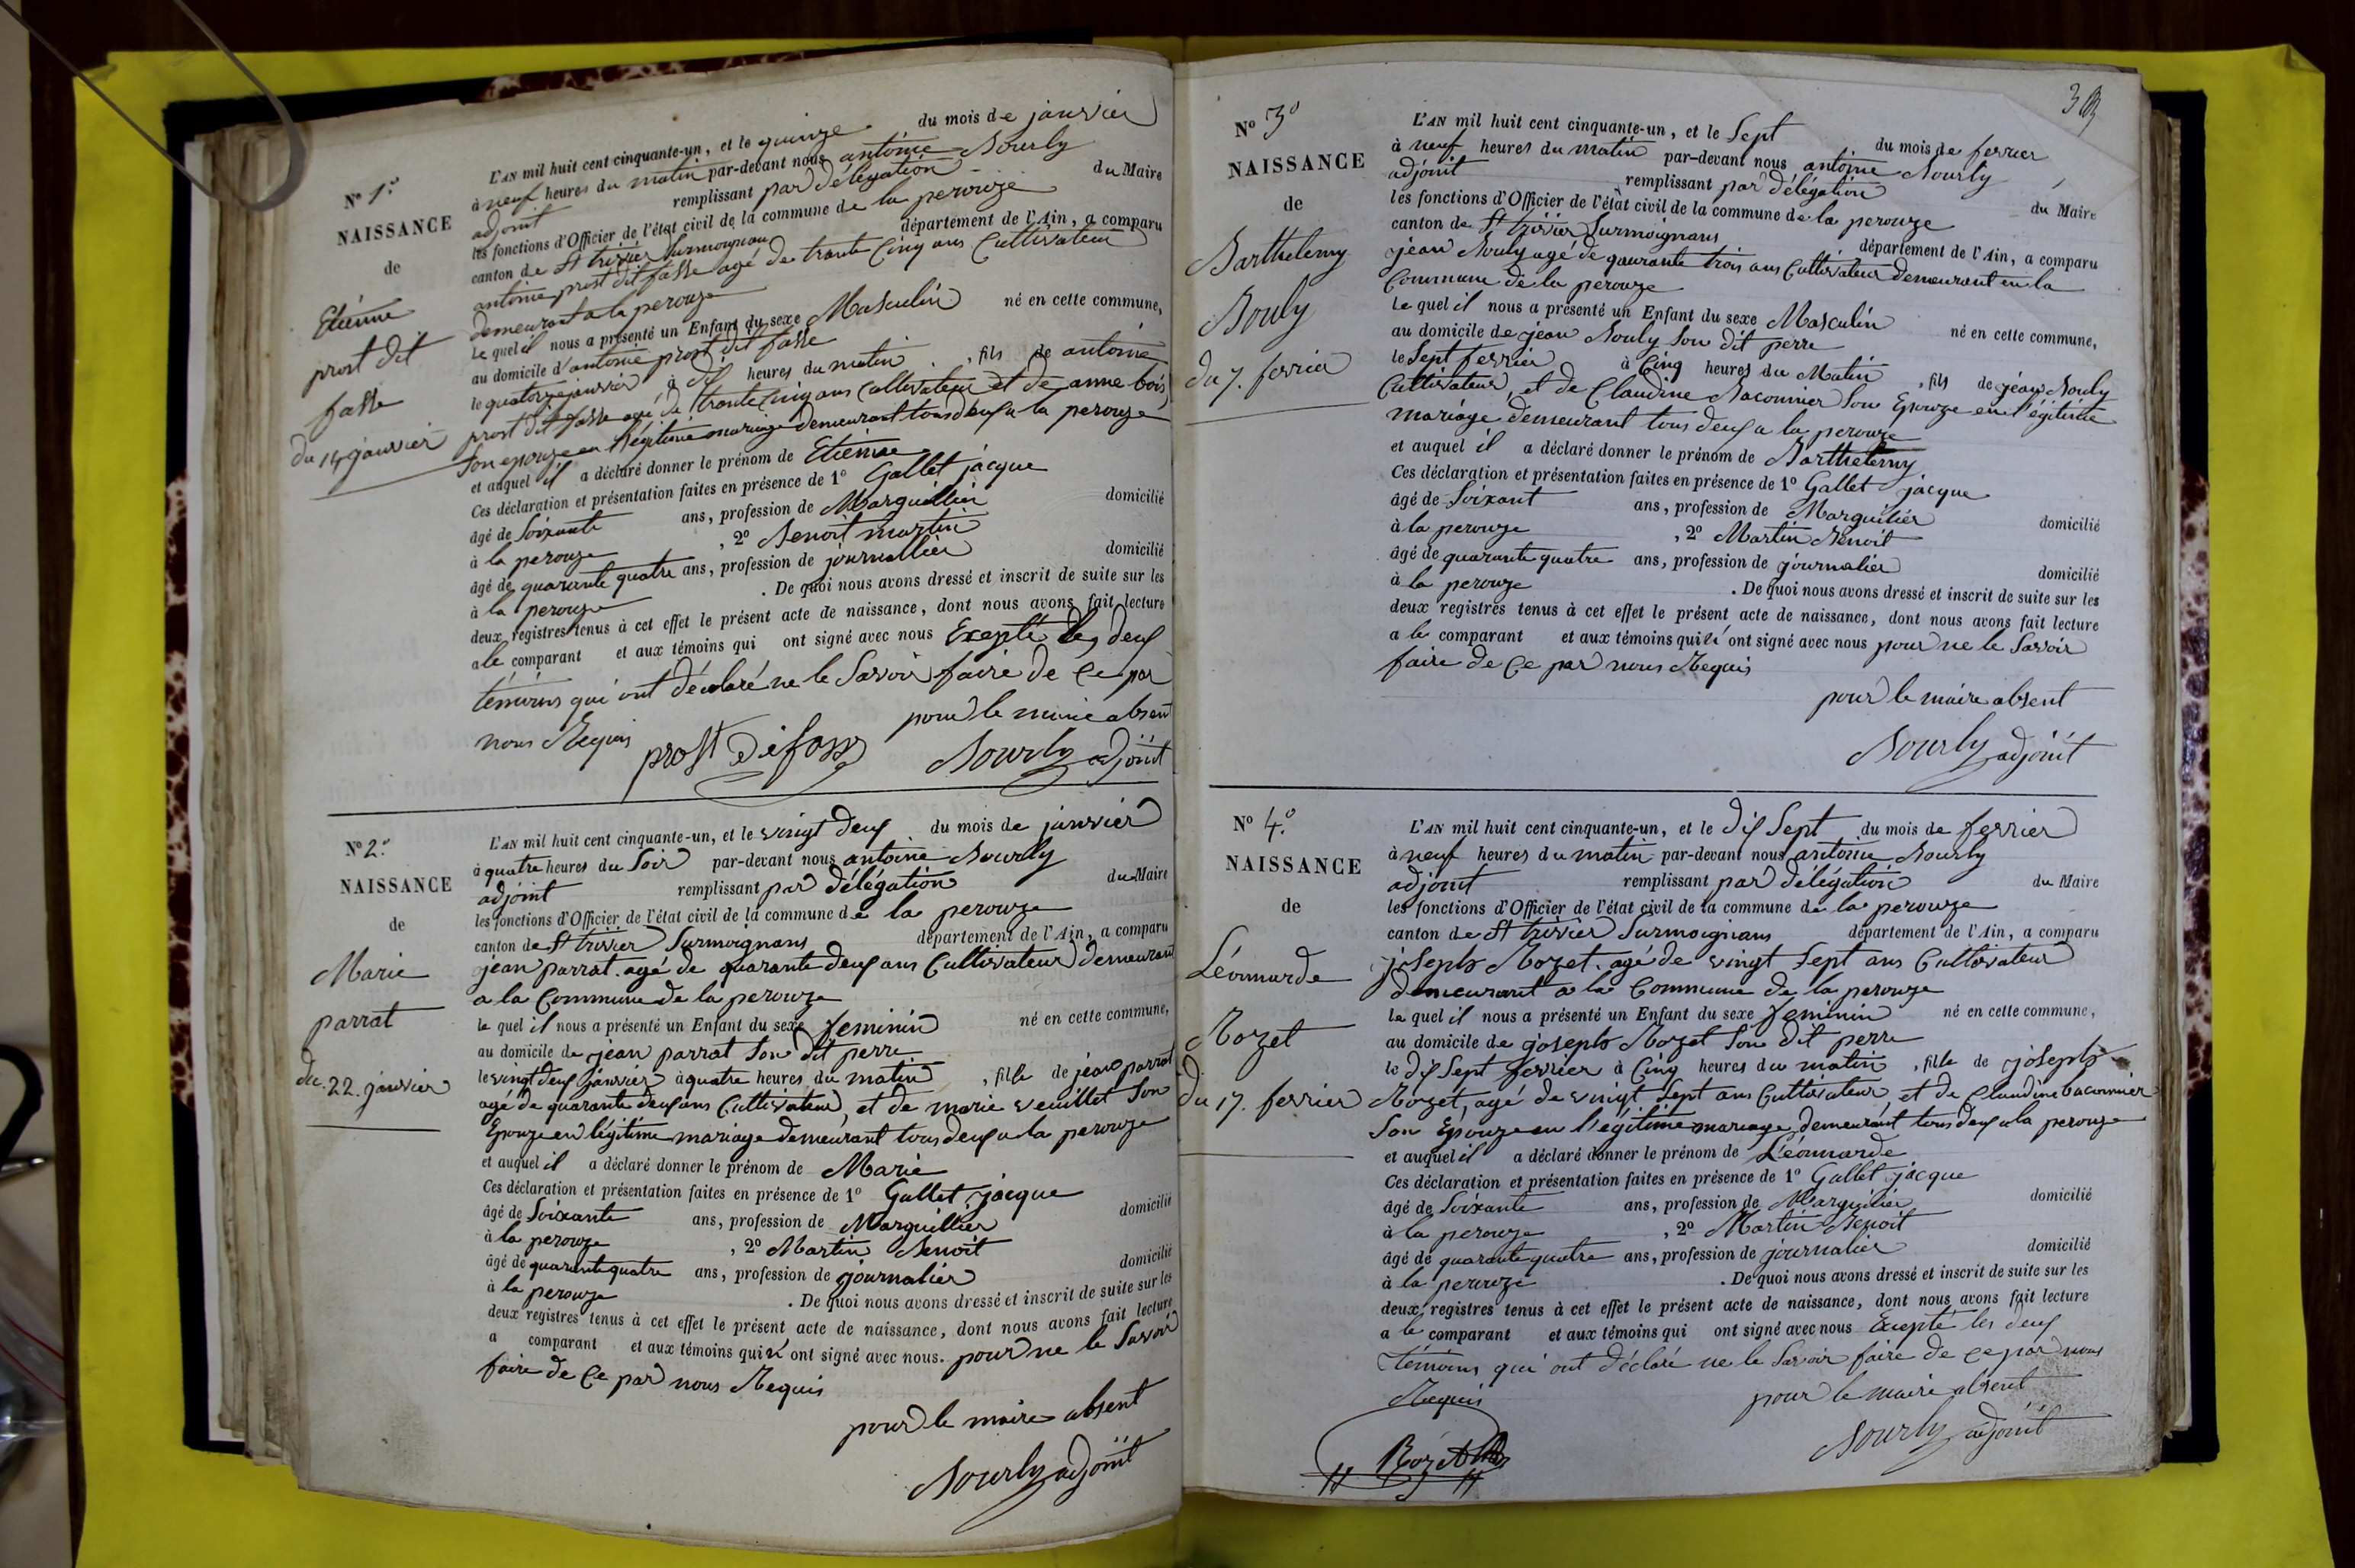 N° 1.°
NAISSANCE
de
Etiénne
prost dit
fasse
du 14 janvier
L'AN mil huit cent cinquante-un, et le quinze du mois de janvier
à neuf heures du matin par-devant nous antoine Bourly
adjoint remplissant par délégation du Maire
les fonctions d'Officier de l'état civil de la commune de la perouze
canton de St trivier Surmoignans département de l'Ain, a comparu
antoine prost dit fasse agé de trante Cinq ans Cultivateur
demeurant a la perouze
le quel il nous a présenté un Enfant du sexe Masculin né en cette commune,
au domicile d'antoine prost dit fasse
le quatorze janvier à dix heures du matin, fils de antoine
prost dit fasse agé de trante Cinq ans Cultivateur et de anne bois
Son epouze en légitime mariage demeurant tous deux a la perouze
et auquel il a déclaré donner le prénom de Etienne
Ces déclaration et présentation faites en présence de 1° Gallet jacque
âgé de Soixante ans, profession de Marguillier domicilié
à la perouze, 2° Benoit martin
âgé de quarante quatre ans, profession de journallier domicilié
à la perouze. De quoi nous avons dressé et inscrit de suite sur les
deux registres tenus à cet effet le présent acte de naissance, dont nous avons fait lecture
a le comparant et aux témoins qui ont signé avec nous Exepté les deux
témoins qui ont déclaré ne le Savoir faire de Ce par
nous Requis pour le maire absent
prost difasse Bourly adjoint
N° 2.°
NAISSANCE
de
Marie
parrat
du. 22. janvier
L'AN mil huit cent cinquante-un, et le vingt deux du mois de janvier
à quatre heures du Soir par-devant nous antoine Bourly
adjoint remplissant par délégation du Maire
les fonctions d'Officier de l'état civil de la commune de la perouze
canton de St trivier Surmoignans département de l'Ain, a comparu
jean parrat agé de quarante deux ans Cultivateur demeurant
a la Commune de la perouze
le quel il nous a présenté un Enfant du sexe feminin né en cette commune,
au domicile de jean parrat Son dit perre
le vingt deux janvier à quatre heures du matin, fille de jean parrat
agé de quarante deux ans Cultivateur, et de marie veuillet Son
Epouze en légitime mariage demeurant tous deux a la perouze
et auquel il a déclaré donner le prénom de Marie
Ces déclaration et présentation faites en présence de 1° Gallet jacque
âgé de Soixante ans, profession de Marguillier domicilié
à la perouze, 2° Martin Benoit
âgé de quarante quatre ans, profession de journalier domicilié
à la perouze. De quoi nous avons dressé et inscrit de suite sur les
deux registres tenus à cet effet le présent acte de naissance, dont nous avons fait lecture
a comparant et aux témoins qui n' ont signé avec nous. pour ne le Savoir
faire de Ce par nous Requis
pour le maire absent
Bourly adjoint
N° 3°
NAISSANCE
de
Barthelemy
Bouly
du 7. fevrier
L'AN mil huit cent cinquante-un, et le Sept du mois de fevrier
à neuf heures du matin par-devant nous antoine Bourly
adjoint remplissant par délégation du Maire
les fonctions d'Officier de l'état civil de la commune de la perouze
canton de St trivier Surmoignans département de l'Ain, a comparu
jean Bouly agé de quarante trois ans Cultivateur demeurant en la
Commune de la perouze
le quel il nous a présenté un Enfant du sexe Masculin né en cette commune,
au domicile de jean Bouly Son dit perre
le Sept fevrier à Cinq heures du Matin, fils de jean Bouly
Cultivateur, et de Claudine Baconnier Son Epouze en légitime
mariage demeurant tous deux a la perouze
et auquel il a déclaré donner le prénom de Barthelemy
Ces déclaration et présentation faites en présence de 1° Gallet jacque
âgé de Soixant ans, profession de Marguillier domicilié
à la perouze, 2° Martin Benoit
âgé de quarante quatre ans, profession de journalier domicilié
à la perouze. De quoi nous avons dressé et inscrit de suite sur les
deux registres tenus à cet effet le présent acte de naissance, dont nous avons fait lecture
a le comparant et aux témoins qui n' ont signé avec nous pour ne le Savoir
faire de Ce par nous Requis
pour le maire absent
Bourly adjoint
N° 4.°
NAISSANCE
de
Léonnarde
Rozet
du 17. fevrier
L'AN mil huit cent cinquante-un, et le Dix Sept du mois de fevrier
à neuf heures du matin par-devant nous antoine Bourly
adjoint remplissant par délégation du Maire
les fonctions d'Officier de l'état civil de la commune de la perouze
canton de St trivier Surmoignans département de l'Ain, a comparu
joseph Rozet. agé de vingt Sept ans Cultivateur
demeurant a la Commune de la perouze
le quel il nous a présenté un Enfant du sexe feminin né en cette commune,
au domicile de joseph Rozet Son dit perre
le dix Sept fevrier à Cinq heures du matin, fille de joseph
Rozet, agé de vingt Sept ans Cultivateur, et de Claudine baconnier
Son Epouze en légitime mariage, demeurant tous deux a la perouze
et auquel il a déclaré donner le prénom de Léonnarde
Ces déclaration et présentation faites en présence de 1° Gallet jacque
âgé de Soixante ans, profession de Marguillier domicilié
à la perouze, 2° Martin Benoit
âgé de quarante quatre ans, profession de journalier domicilié
à la perouze. De quoi nous avons dressé et inscrit de suite sur les
deux registres tenus à cet effet le présent acte de naissance, dont nous avons fait lecture
a le comparant et aux témoins qui ont signé avec nous Exepté les deux
témoins qui ont déclaré ne le Savoir faire de Ce par nous
Requis pour le maire absent
Rozet Bourly adjoint